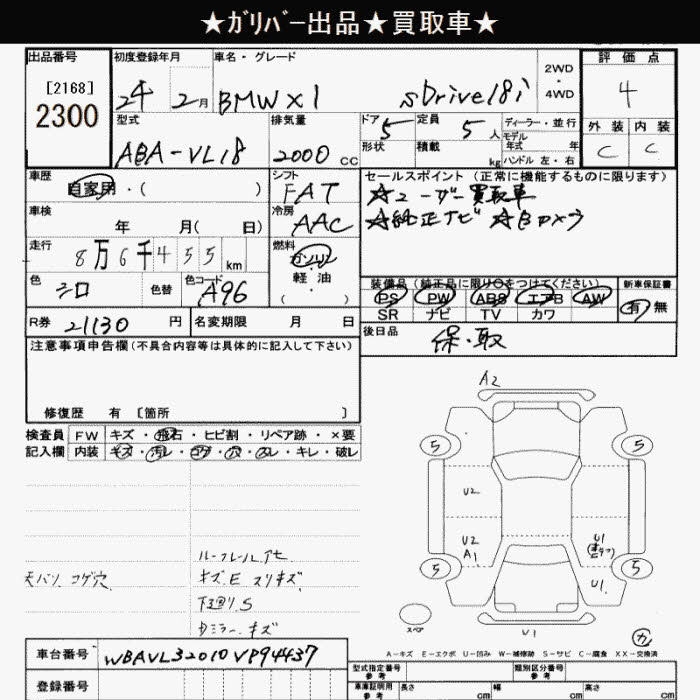 ★ｶﾞﾘﾊﾞｰ出品★買取車★
出品番号 初度登録年月 車名・グレード 評価点
[2168] 24年 2月 BMW X1 sDrive18i 2WD・4WD 4
2300
型式 排気量 ドア 定員 ディーラー・並行 外装 内装
ABA-VL18 2000cc 5 5人 モデル年式 年 C C
形状 積載 kg ハンドル 左・右
車歴 シフト セールスポイント (正常に機能するものに限ります)
自家用・( ) FAT ☆ユーザー買取車
車検 冷房 ☆純正ナビ ☆Bカメラ
年 月( 日) AAC
走行 燃料
8万6千455km ガソリン
軽油
色 色替 色コード ( )
シロ A96
装備品 (純正品に限り○をつけてください) 新車保証書
PS PW ABS エアB AW 有・無
SR ナビ TV カワ
R券 21130円 名変期限 月 日 後日品 保・取
注意事項申告欄(不具合内容等は具体的に記入して下さい)
修復歴 有 [箇所 ]
検査員 FW キズ・飛石・ヒビ割・リペア跡・×要
記入欄 内装 キズ・汚レ・コゲ・穴・スレ・キレ・破レ
A2
5 5
U2
U2 U1
A1
5 5
U1
U1
スペア
ルーフレール
天バリ コゲ穴
キズE スリキズ
下回りS
Dミラーキズ
A-キズ E-エクボ U-凹み W-補修跡 S-サビ C-腐食 XX-交換済
車台番号 WBAVL32010VP94437
登録番号
型式指定番号 参考 類別区分番号 参考
車庫証明用 参考 長さ cm 幅 cm 高さ cm